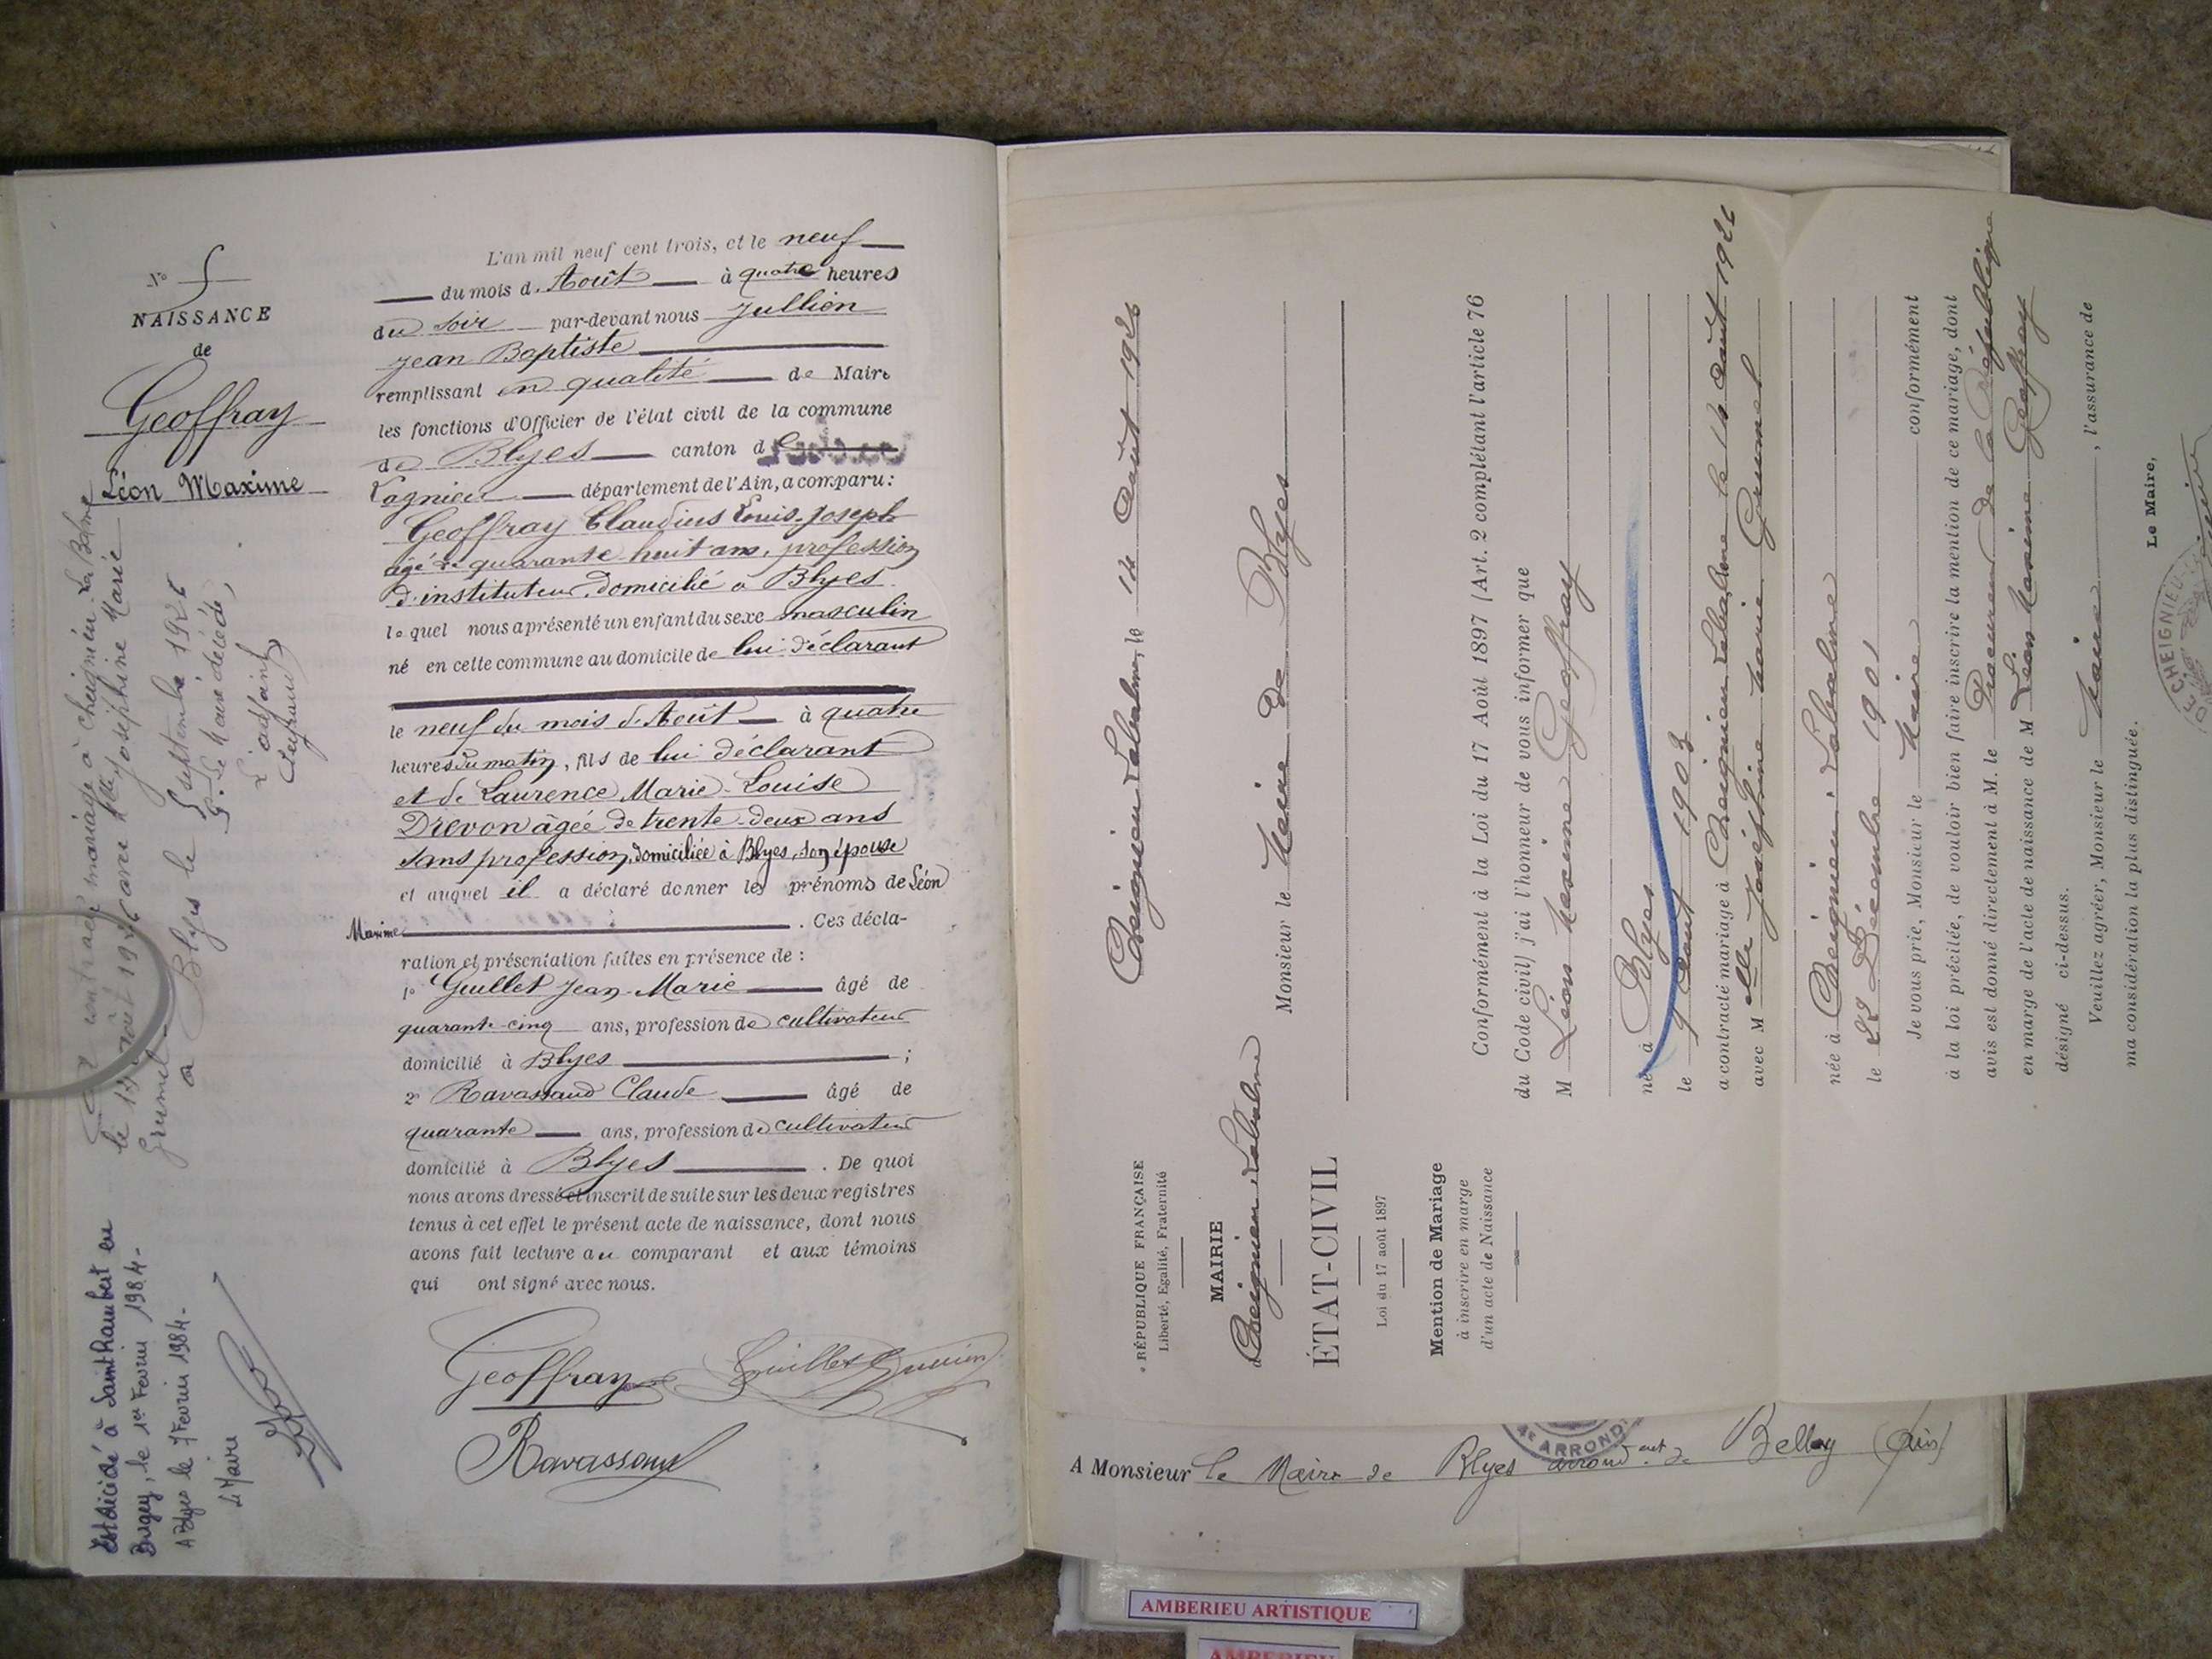 N° 5
NAISSANCE
de
Geoffray
Léon Maxime
A contracté mariage à Cheignieu-La Balme
le 14 août 1926 avec Melle Joséphine Marie
Grumel
à Blyes le 5 septembre 1926
P. le Maire décédé,
L'adjoint
Est décédé à Saint Rambert en
Bugey, le 1er Fevrier 1984-
A Blyes le 7 Fevrier 1984-
Le Maire
L'an mil neuf cent trois, et le neuf
du mois d'Août à quatre heures
du soir par-devant nous Jullien
Jean Baptiste
remplissant en qualité de Maire
les fonctions d'Officier de l'état civil de la commune
de Blyes canton d
Lagnieu département de l'Ain, a comparu:
Geoffray Claudius Louis-Joseph
âgé de quarante huit ans, profession
d'instituteur, domicilié à Blyes
lequel nous a présenté un enfant du sexe masculin
né en cette commune au domicile de lui déclarant
le neuf du mois d'Août à quatre
heures du matin, fils de lui déclarant
et de Laurence Marie-Louise
Drevon âgée de trente-deux ans
sans profession, domiciliée à Blyes, son épouse
et auquel il a déclaré donner les prénoms de Léon
Maxime. Ces décla-
ration et présentation faites en présence de :
1° Guillet Jean-Marie âgé de
quarante-cinq ans, profession de cultivateur
domicilié à Blyes ;
2° Ravassaud Claude âgé de
quarante ans, profession de cultivateur
domicilié à Blyes. De quoi
nous avons dressé et inscrit de suite sur les deux registres
tenus à cet effet le présent acte de naissance, dont nous
avons fait lecture au comparant et aux témoins
qui ont signé avec nous.
Geoffray Guillet Jullien
Ravassaud
RÉPUBLIQUE FRANÇAISE
Liberté, Egalité, Fraternité
MAIRIE
d Cheignieu-Labalme
ÉTAT-CIVIL
Loi du 17 août 1897
Mention de Mariage
à inscrire en marge
d'un acte de Naissance
Cheignieu-Labalme, le 14 Août 1926
Monsieur le Maire de Blyes
Conformément à la Loi du 17 Août 1897 (Art. 2 complétant l'article 76
du Code civil) j'ai l'honneur de vous informer que
M Léon Maxime Geoffray
né à Blyes
le 9 Août 1903
a contracté mariage à Cheignieu-Labalme le 14 Août 1926
avec Melle Joséphine Marie Grumel
née à Cheignieu-Labalme
le 22 Décembre 1901
Je vous prie, Monsieur le Maire conformément
à la loi précitée, de vouloir bien faire inscrire la mention de ce mariage, dont
avis est donné directement à M. le Procureur de la République
en marge de l'acte de naissance de M Léon Maxime Geoffray
désigné ci-dessus.
Veuillez agréer, Monsieur le Maire, l'assurance de
ma considération la plus distinguée.
Le Maire,
DE CHEIGNIEU
4E ARROND
A Monsieur le Maire de Blyes arrondt de Belley (Ain)
AMBERIEU ARTISTIQUE
AMBERIEU